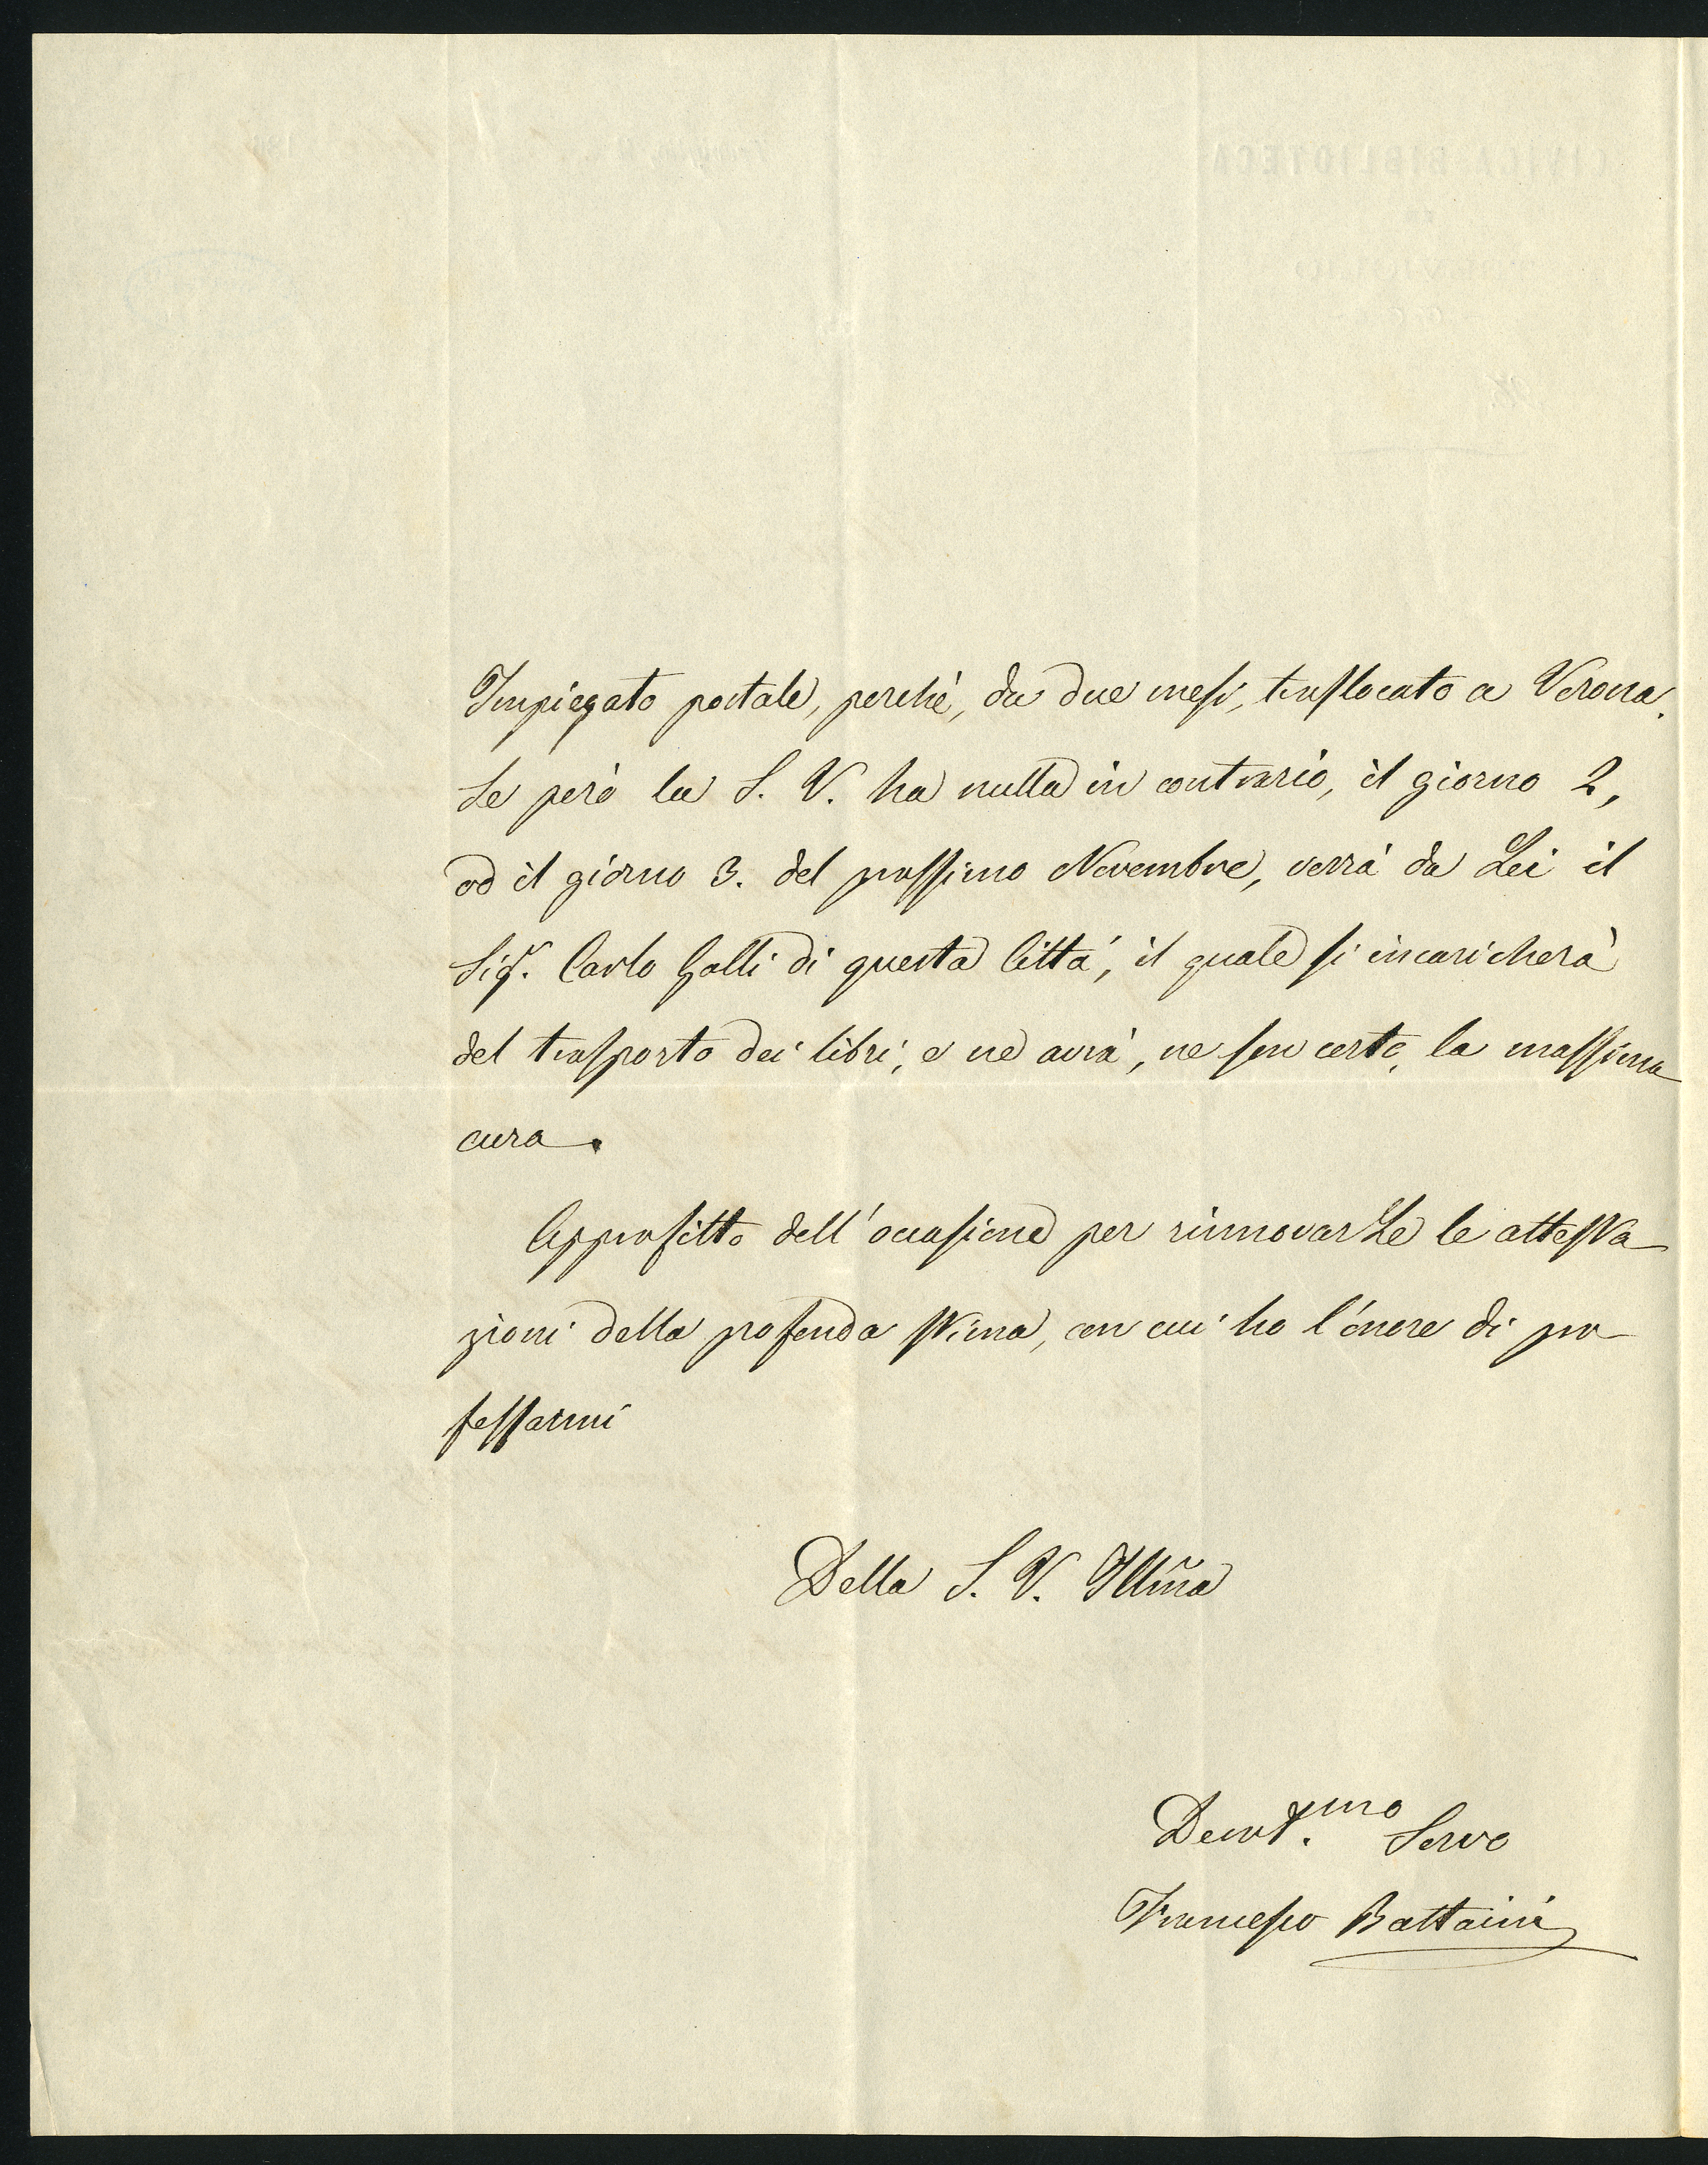 Impiegato postale, perchè, da due mesi, traslocato a Verona.
Se però la S. V. ha nulla in contrario, il giorno 2,
od il giorno 3. del prossimo Novembre, verrà da Lei il
Sigr. Carlo Galli di questa Città, il quale si incaricherà
del trasporto dei libri, e ne avrà, ne son certo, la massima
cura.
Approfitto dell'occasione per rinnovarLe le attesta
zioni della profonda stima, con cui ho l'onore di pro
fessarmi
Della S. V. Illma
Devot.mo Servo
Francesco Battaini